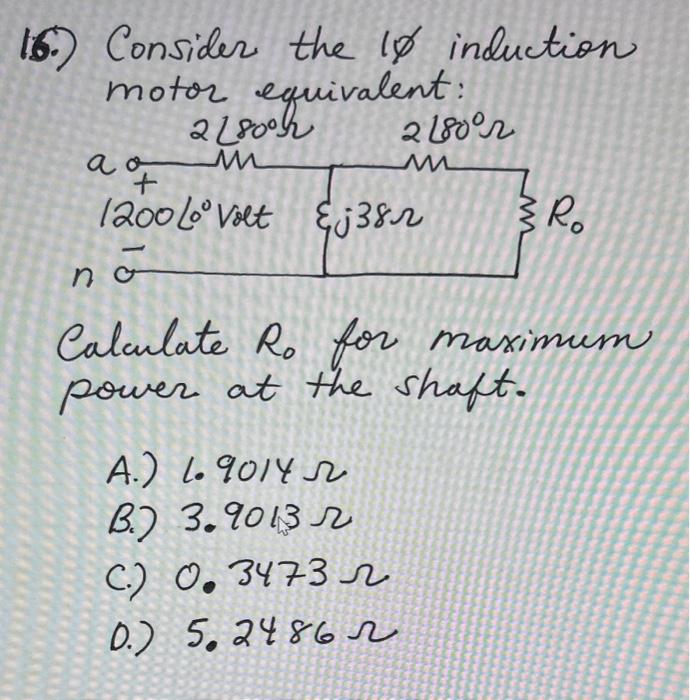 16.) Consider the 1ø induction
motor equivalent:
2∠80°Ω 2∠80°Ω
a
+
1200∠0° Volt j38Ω R₀
−
n
Calculate R₀ for maximum
power at the shaft.
A.) 1.9014 Ω
B.) 3.9013 Ω
C.) 0.3473 Ω
D.) 5.2486 Ω